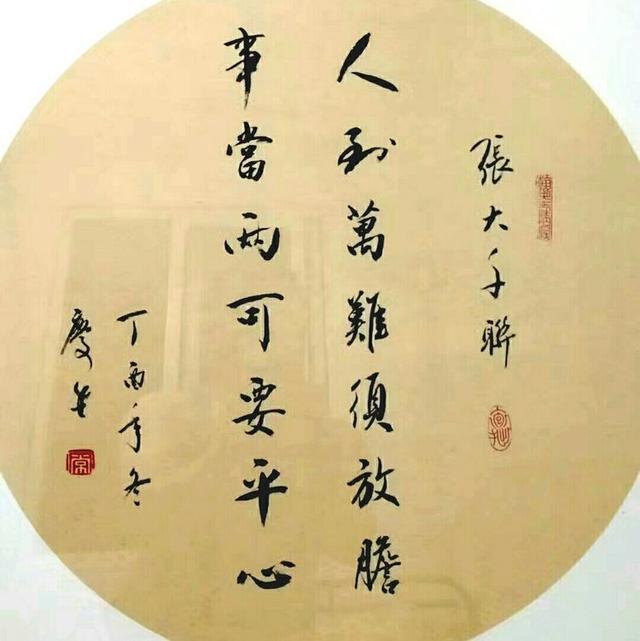 張大千聯
人到萬難須放膽
事當兩可要平心
丁酉年冬